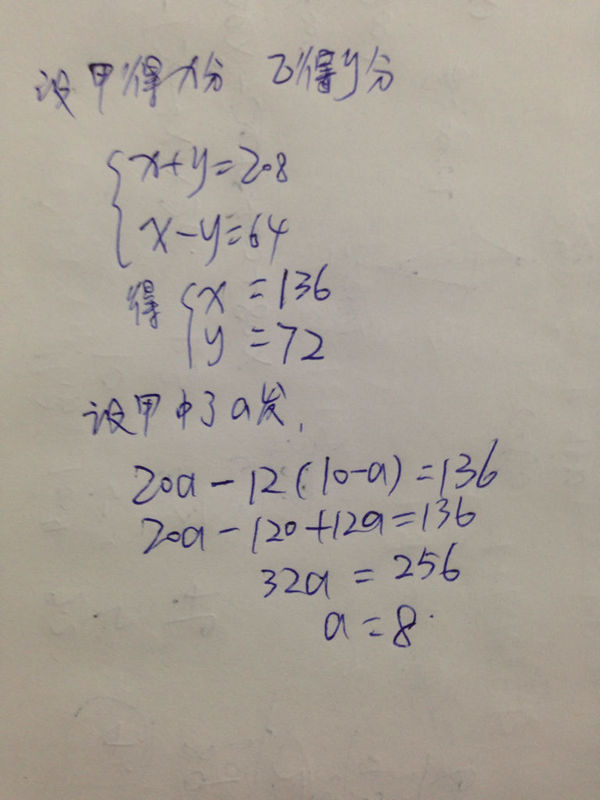 设甲得x分 乙得y分
x+y=208
x-y=64
得 x=136
y=72
设甲中了a发,
20a-12(10-a)=136
20a-120+12a=136
32a=256
a=8.